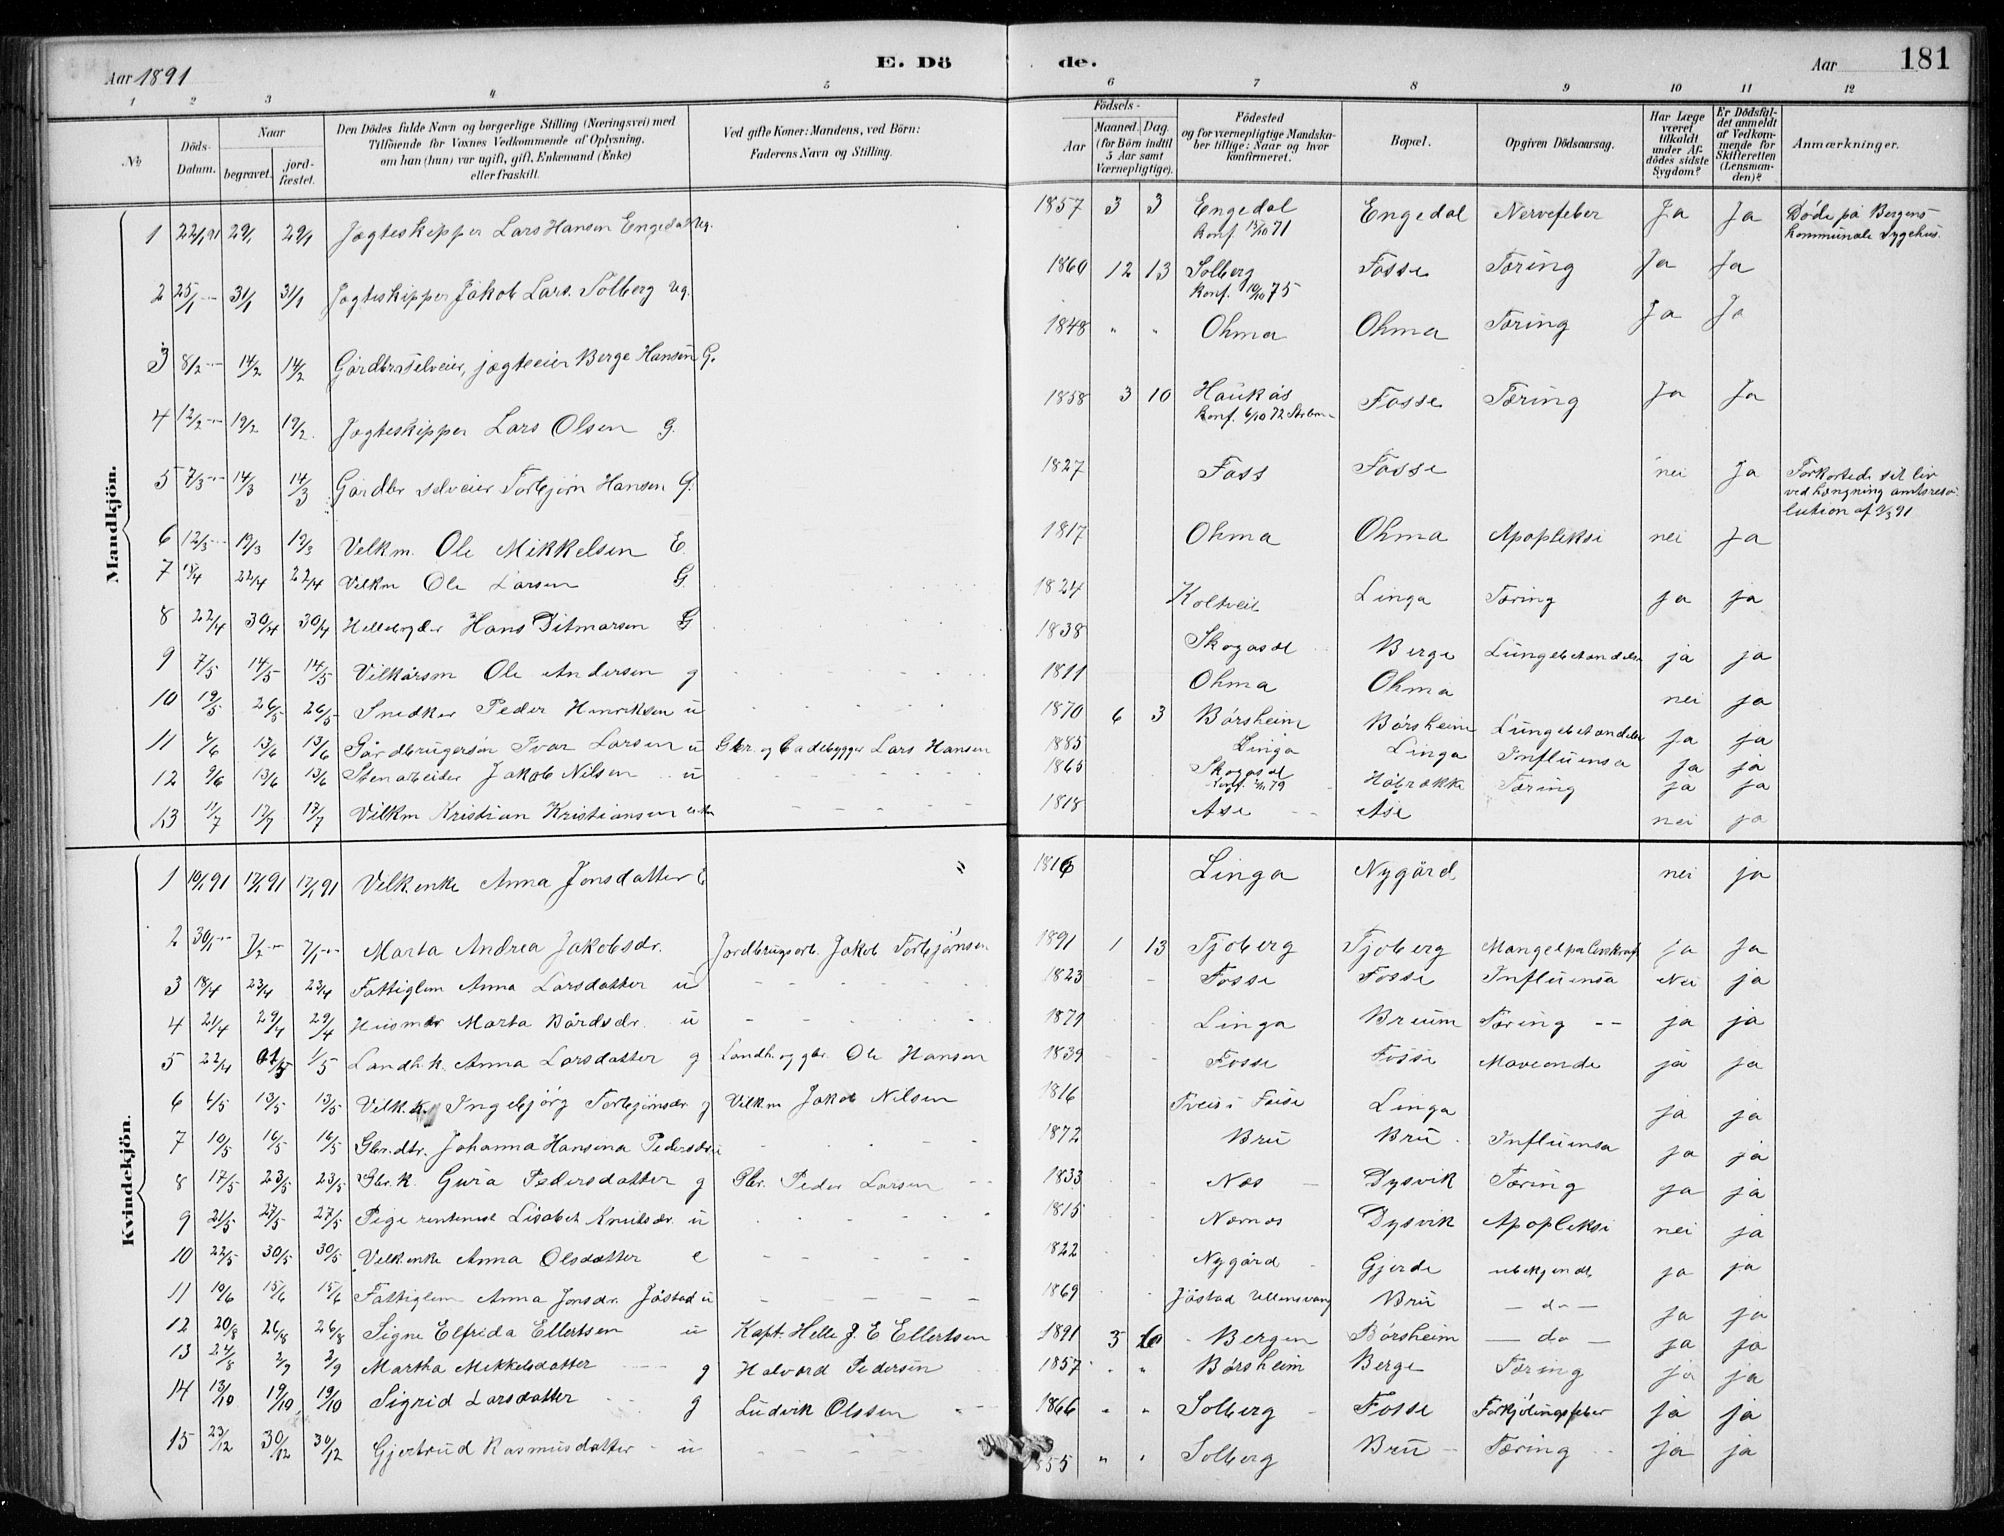 Aar 1891 E. Dö
1 2 3 4 5
№ Döds-Datum. Naar begravet. jordfæstet. Den Dödes fulde Navn og borgerlige Stilling (Næringsvei) med Tilföiende for Voxnes Vedkommende af Oplysning, om han (hun) var ugift, gift, Enkemand (Enke) eller fraskilt. Ved gifte Koner: Mandens, ved Börn: Faderens Navn og Stilling.
Mandkjön.
1 22/1 91 29/1 29/1 Jægteskipper Lars Hansen Engedal Ug.
2 25/1 31/1 31/1 Jægteskipper Jakob Lars. Solberg Ug.
3 8/2 14/2 14/2 Gårdbr selveier, jægteeier Berge Hansen G.
4 12/2 19/2 19/2 Jægteskipper Lars Olsen G.
5 7/3 14/3 14/3 Gårdbr selveier Torbjørn Hansen G.
6 12/3 19/3 19/3 Velkm. Ole Mikkelsen E.
7 22/4 22/4 Vilkm Ole Larsen G.
8 22/4 30/4 30/4 Hans Ditmarsen G
9 7/5 14/5 14/5 Vilkårsm Ole Andersen g
10 19/5 26/5 26/5 Snedker Peder Henriksen u
11 6/6 13/6 13/6 Gårdbrugersøn Ivar Larsen u Gbr. og Badebygger Lars Hansen
12 9/6 13/6 13/6 Stenarbeider Jakob Nilsen u
13 11/7 17/7 17/7 Vilkm Kristian Kristiansen
Kvindekjön.
1 10/1 91 17/1 91 17/1 91 Velk.enke Anna Jonsdatter E
2 30/1 7/2 7/1 Marta Andrea Jakobsdr. Jordbrugsarb. Jakob Torbjørnsen
3 18/4 23/4 23/4 Fattiglem Anna Larsdatter u
4 21/4 29/4 29/4 Husmdr Marta Bårdsdr. u
5 22/4 1/5 Landh.k. Anna Larsdatter g Landh. og gbr. Ole Hansen
6 6/5 13/5 13/5 Velk.k. Ingebjørg Torbjørnsdr. g Velkm Jakob Nilsen
7 10/5 16/5 16/5 Gbr.dtr. Johanna Hansina Pedersdr u
8 17/5 23/5 23/5 Gbr.k. Gura Pedersdatter g Gbr. Peder Larsen
9 21/5 27/5 27/5 Pige Lisabet Knutsdr. u
10 22/5 30/5 30/5 Velk.enke Anna Olsdatter e
11 10/6 15/6 15/6 Fattiglem Anna Jonsdr. Jåstad u
12 20/8 26/8 26/8 Signe Elfrida Ellertsen u Kapt. Helle J. E Ellertsen
13 24/8 2/9 2/9 Martha Mikkelsdatter g Halvard Pedersen
14 13/10 19/10 19/10 Sigrid Larsdatter g Ludvik Olssen
15 23/12 30/12 30/12 Gjertrud Rasmusdatter u
de. Aar 181
6 7 8 9 10 11 12
Födsels- Aar Maaned. Dag. (for Börn indtil 5 Aar samt Værnepligtige). Födested og for værnepligtige Mandskaber tillige: Naar og hvor konfirmeret. Bopæl. Opgiven Dödsaarsag. Har Læge været tilkaldt under Afdödes sidste Sygdom? Er Dödsfaldet anmeldt af Vedkommende for Skifteretten (Lensmanden)? Anmærkninger.
1857 3 3 Engedal Engedal Nervefeber Ja Ja Døde på Bergens
konf 15/10 71 kommunale Sygehus.
1860 12 13 Solberg Fosse Tæring Ja Ja
konf. 10/10 75
1848 " " Ohma Ohma Tæring Ja Ja
1858 3 10 Haukås Fosse Tæring Ja Ja
konf. 6/10 72
1827 Foss Fosse nei Ja Forkortede sit liv
ved hængning amtsreso-
lution af 9/3 91
1817 Ohma Ohma Apopleksi nei Ja
1824 Koltveit Linga Tæring ja ja
1838 Skogasel Berge Lungebetændelse ja ja
1811 Ohma Ohma nei ja
1870 6 3 Børsheim Børsheim Lungebetændelse ja ja
1885 Linga Linga Influensa ja ja
1865 Skogasel Håbrække Tæring ja ja
1818 Ase Ase nei ja
1816 Linga Nygård nei ja
1891 1 13 Tjoberg Tjoberg Mangel på livskraft ja ja
1823 Fosse Fosse Influensa Nei ja
1871 Linga Bruum Tæring ja ja
1839 Fosse Fosse Maveonde ja ja
1816 Tveit i Fosse Linga ja ja
1872 Bru Bru Influensa ja ja
1833 Næs Dysvik Tæring ja ja
1815 Nærnæs Dysvik Apopleksi nei ja
1822 Nygård Gjerde ubekjendt ja ja
1869 Jåstad Ullensvang Bru — do — ja ja
1891 5 Bergen Børsheim — do — ja ja
1857 " " Børsheim Berge Tæring ja ja
1866 " " Solberg Fosse Forkjølingsfeber ja ja
1855 " " Solberg Bru Tæring ja ja